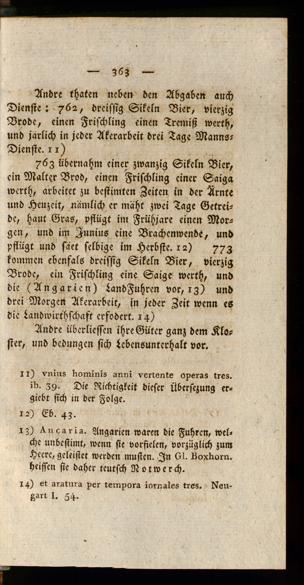 — 363 —
Andre thaten neben den Abgaben auch
Dienste: 762, dreissig Sikeln Bier, vierzig
Brode, einen Frischling einen Tremiß werth,
und järlich in jeder Akerarbeit drei Tage Manns-
Dienste. 11)
763 übernahm einer zwanzig Sikeln Bier,
ein Malter Brod, einen Frischling einer Saiga
werth, arbeitet zu bestimten Zeiten in der Ärnte
und Heuzeit, nämlich er mäht zwei Tage Getrei-
de, haut Gras, pflügt im Frühjare einen Mor-
gen, und im Junius eine Brachenwende, und
pflügt und säet selbige im Herbste. 12) 773
kommen ebenfals dreissig Sikeln Bier, vierzig
Brode, ein Frischling eine Saige werth, und
die (Angarien) LandFuhren vor, 13) und
drei Morgen Akerarbeit, in jeder Zeit wenn es
die Landwirthschaft erfodert. 14)
Andre überliessen ihre Güter ganz dem Klo-
ster, und bedungen sich Lebensunterhalt vor.
11) vnius hominis anni vertente operas tres.
ib. 39. Die Richtigkeit dieser Übersezung er-
giebt sich in der Folge.
12) Eb. 43.
13) Ancaria. Angarien waren die Fuhren, wel-
che unbestimt, wenn sie vorfielen, vorzüglich zum
Heere, geleistet werden musten. In Gl. Boxhorn.
heissen sie daher teutsch Notwerch.
14) et aratura per tempora iornales tres. Neu-
gart I. 54.